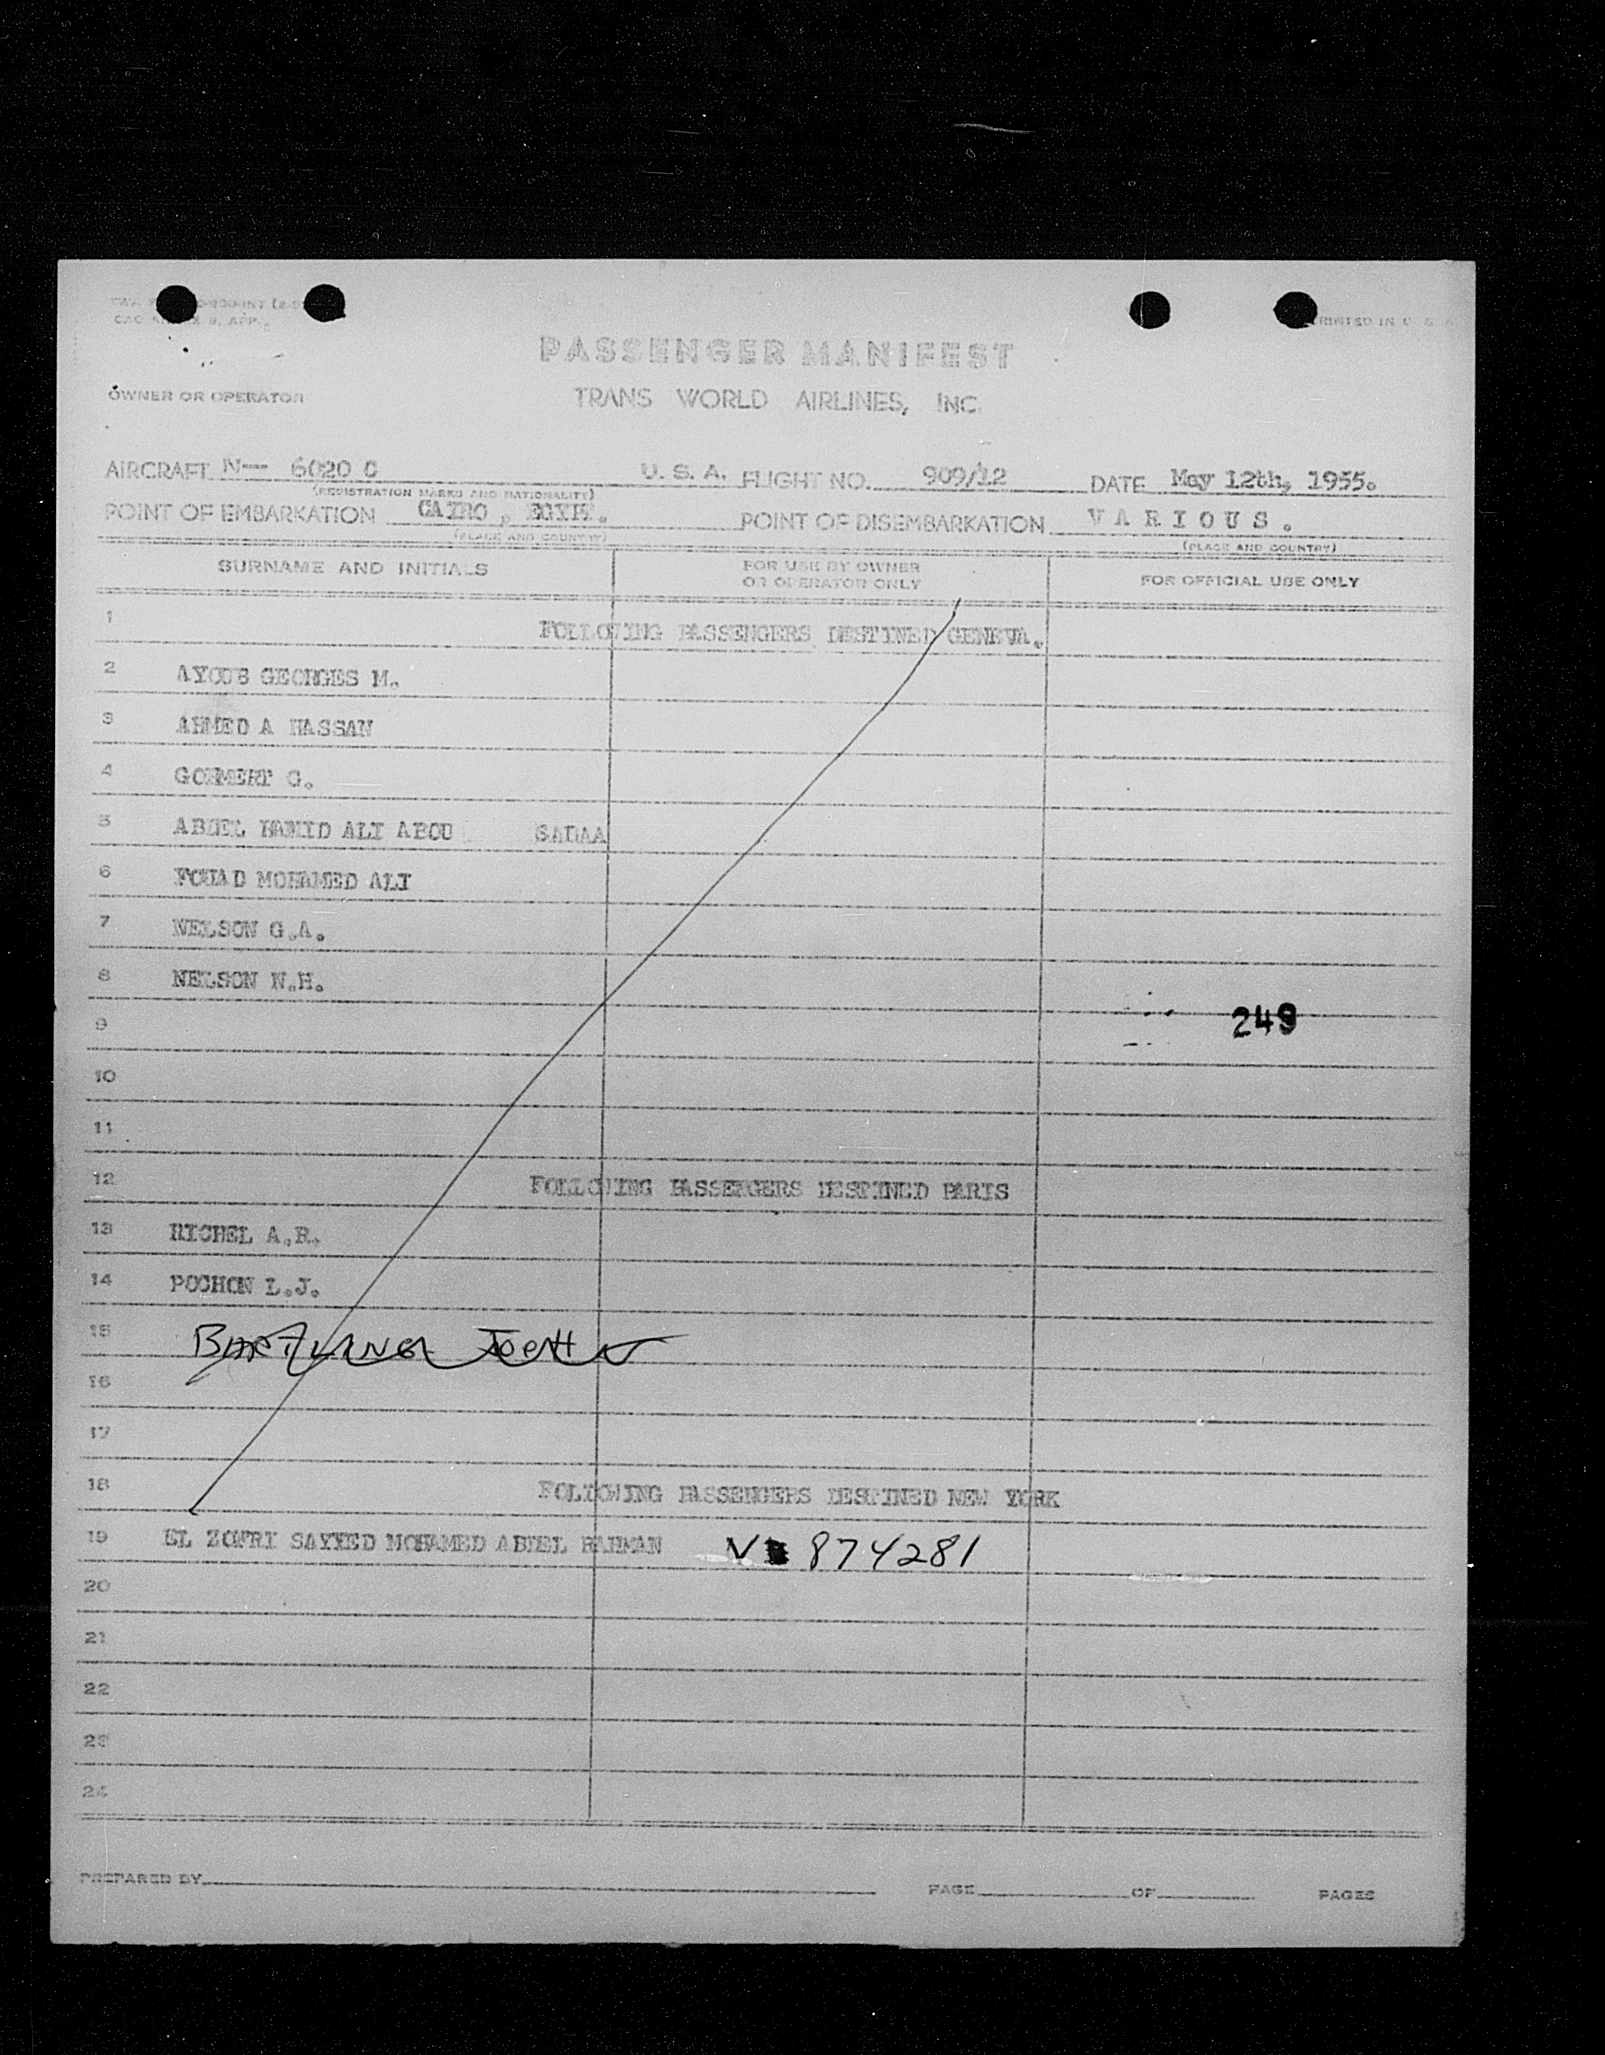 CAO ANNEX 9, APP.
PRINTED IN U. S. A.
PASSENGER MANIFEST
OWNER OR OPERATOR TRANS WORLD AIRLINES, INC.
AIRCRAFT N-- 6020 C U. S. A. FLIGHT NO. 909/12 DATE May 12th, 1955.
(REGISTRATION MARKS AND NATIONALITY)
POINT OF EMBARKATION CAIRO, EGYPT. POINT OF DISEMBARKATION V A R I O U S .
(PLACE AND COUNTRY) (PLACE AND COUNTRY)
SURNAME AND INITIALS FOR USE BY OWNER OR OPERATOR ONLY FOR OFFICIAL USE ONLY
1 FOLLOWING PASSENGERS DESTINED GENEVA.
2 AYOUB GEORGES M.
3 AHMED A HASSAN
4 GOHMERT G.
5 ABDEL HAMID ALI ABOU SADAA
6 FOUAD MOHAMED ALI
7 NELSON G.A.
8 NELSON N.H.
9 249
10
11
12 FOLLOWING PASSENGERS DESTINED PARIS
13 RICHEL A.R.
14 POCHON L.J.
15
16
17
18 FOLLOWING PASSENGERS DESTINED NEW YORK
19 EL ZOWRI SAYYED MOHAMED ABDEL RAHMAN V 874281
20
21
22
23
24
PREPARED BY PAGE OF PAGES